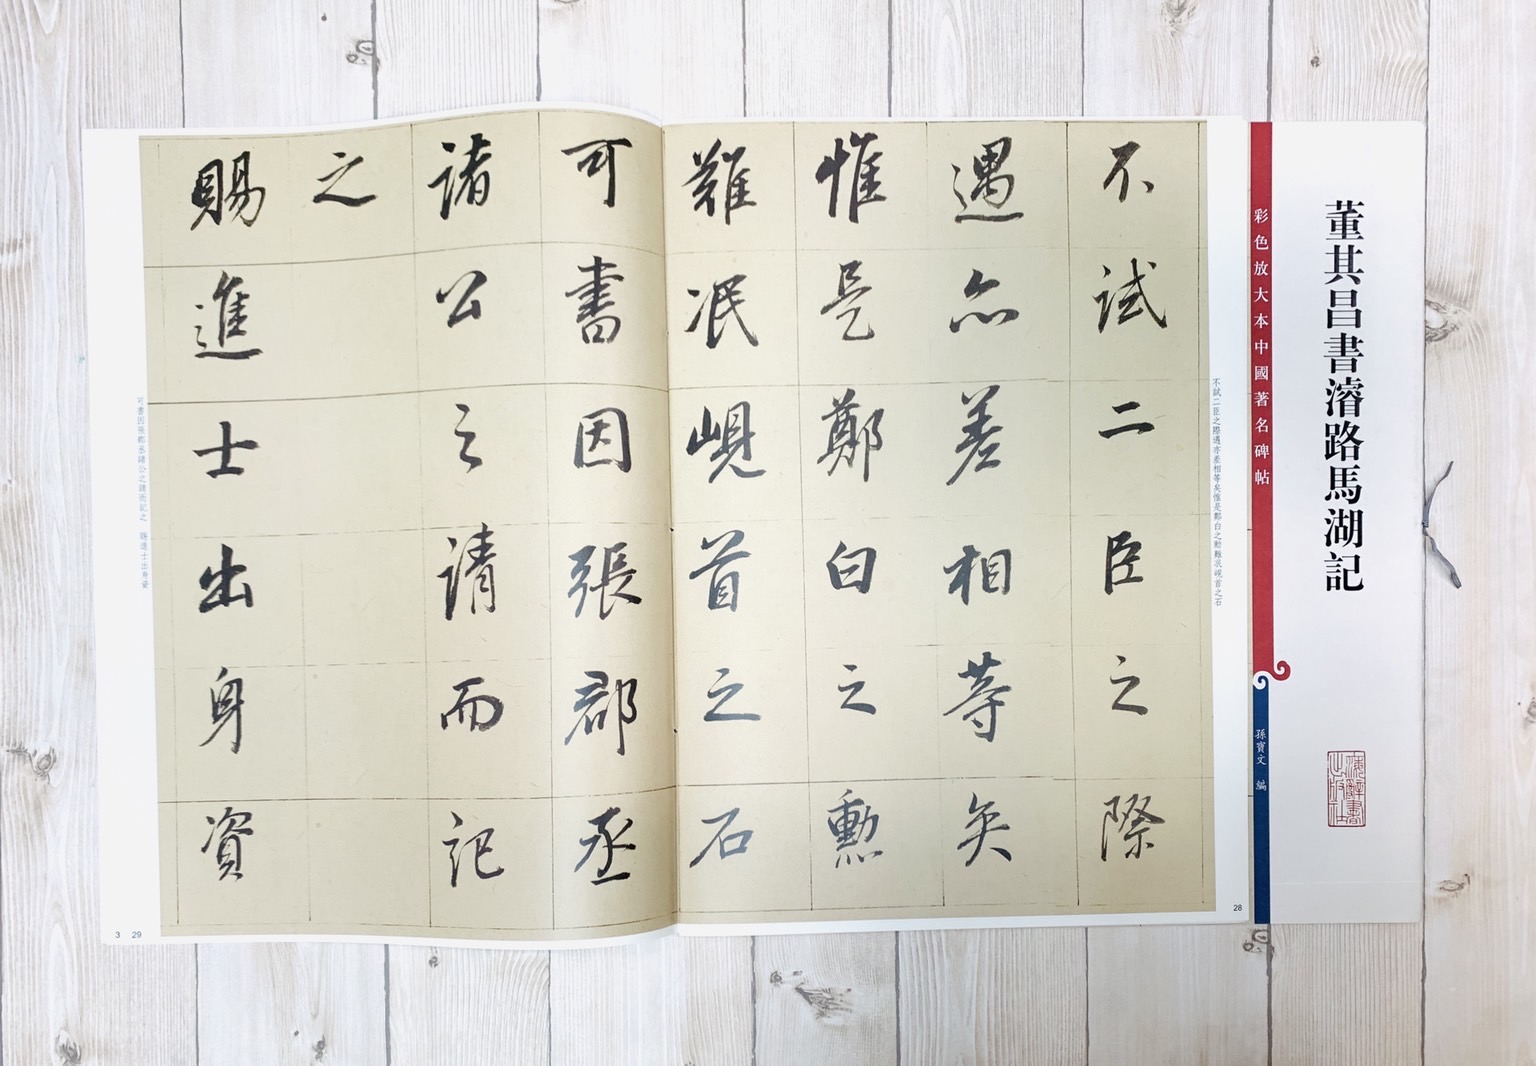 董其昌書濬路馬湖記
彩色放大本中國著名碑帖
孫寶文 編
海辭書出版社
不試二臣之際
遇亦差相等矣
惟是鄭白之勳
難泯峴首之石
可書因張郡丞
諸公之請而記
之
賜進士出身資
不試二臣之際遇亦差相等矣惟是鄭白之勳難泯峴首之石
可書因張郡丞諸公之請而記之 賜進士出身資
28
3 29